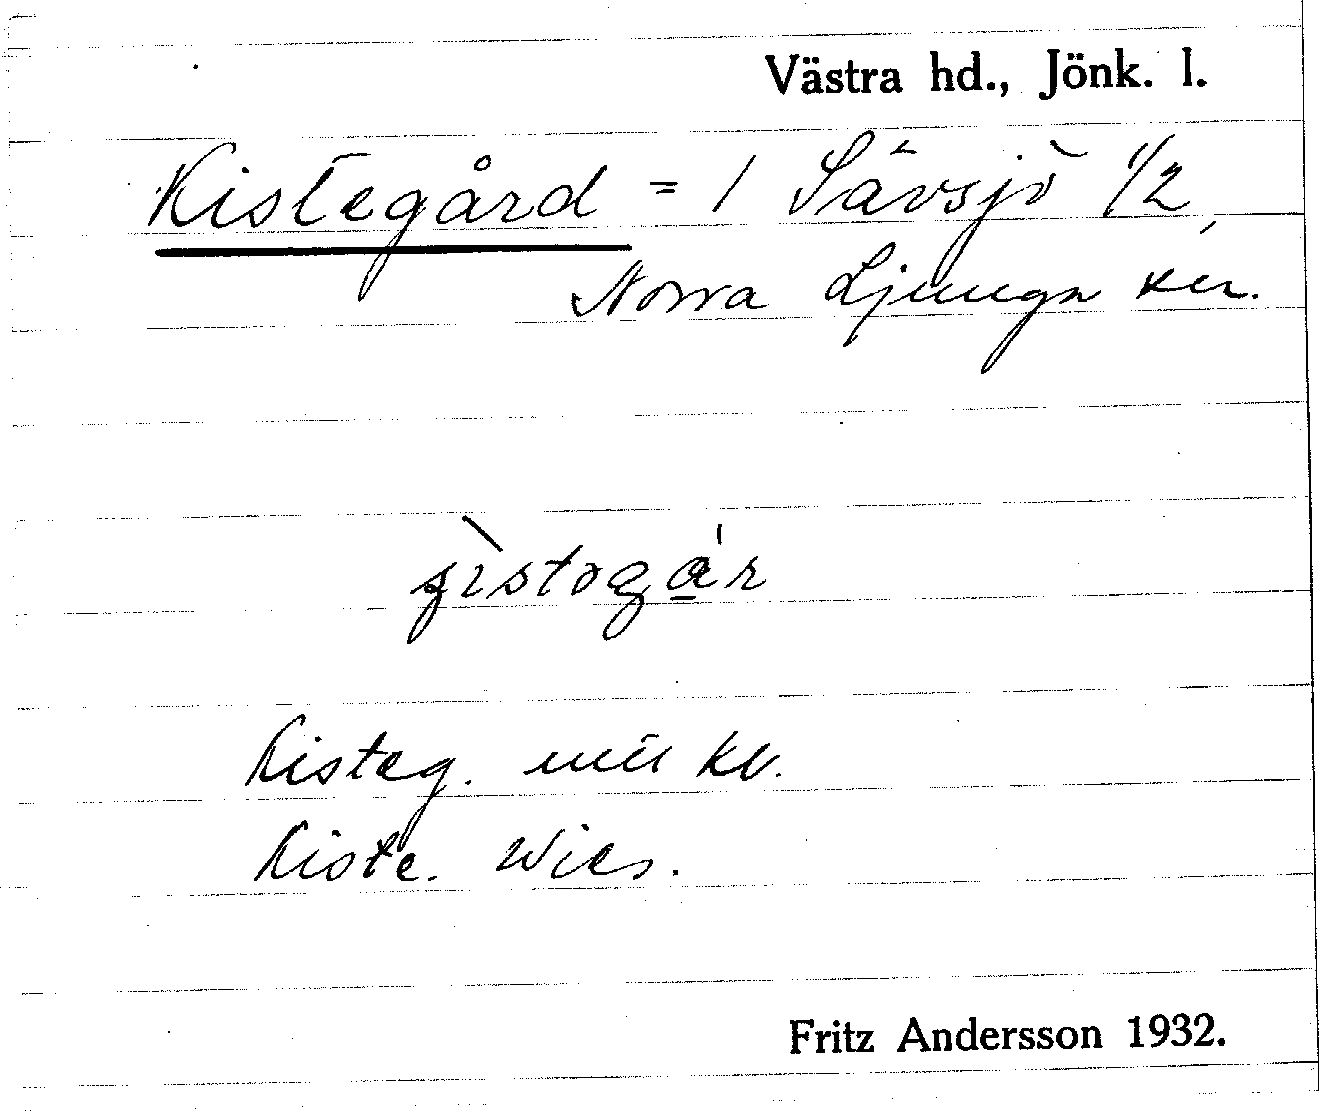 Västra hd., Jönk. l.
Kistegård = 1 Sävsjö 1/2,
Norra Ljunga sn.
Kisteg.
Kiste. Wies.
Fritz Andersson 1932.